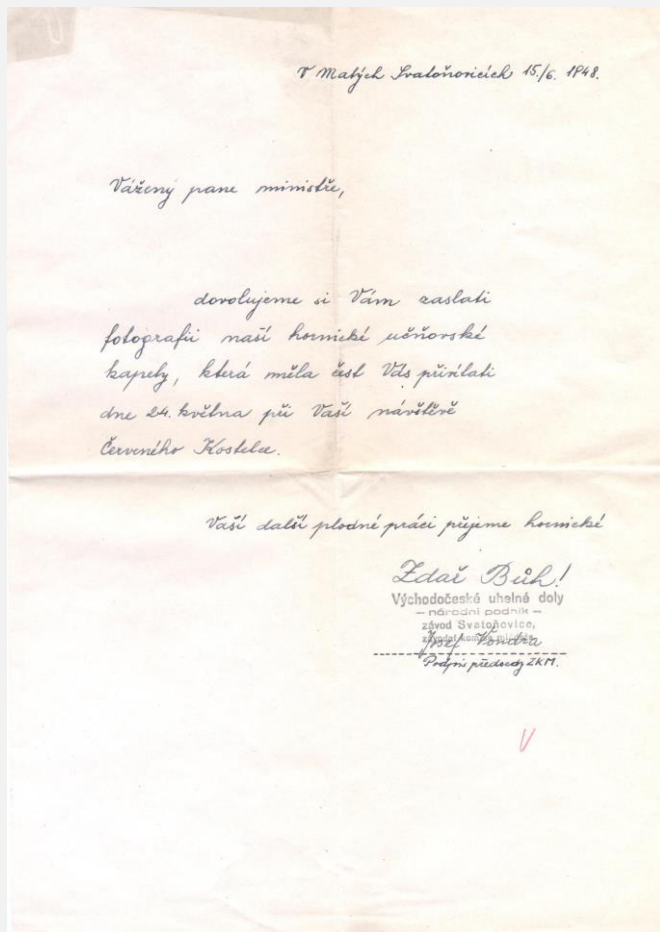 V Malých Svatoňovicích 15./6. 1948.
Vážený pane ministře,
dovolujeme si Vám zaslati
fotografii naší hornické učňovské
kapely, která měla čest Vás přivítati
dne 24. května při Vaší návštěvě
Červeného Kostelce.
Vaší další plodné práci přejeme hornické
Zdař Bůh!
Východočeské uhelné doly
— národní podnik —
závod Svatoňovice,
Josef Vondra
Podpis předsedy ZKM.